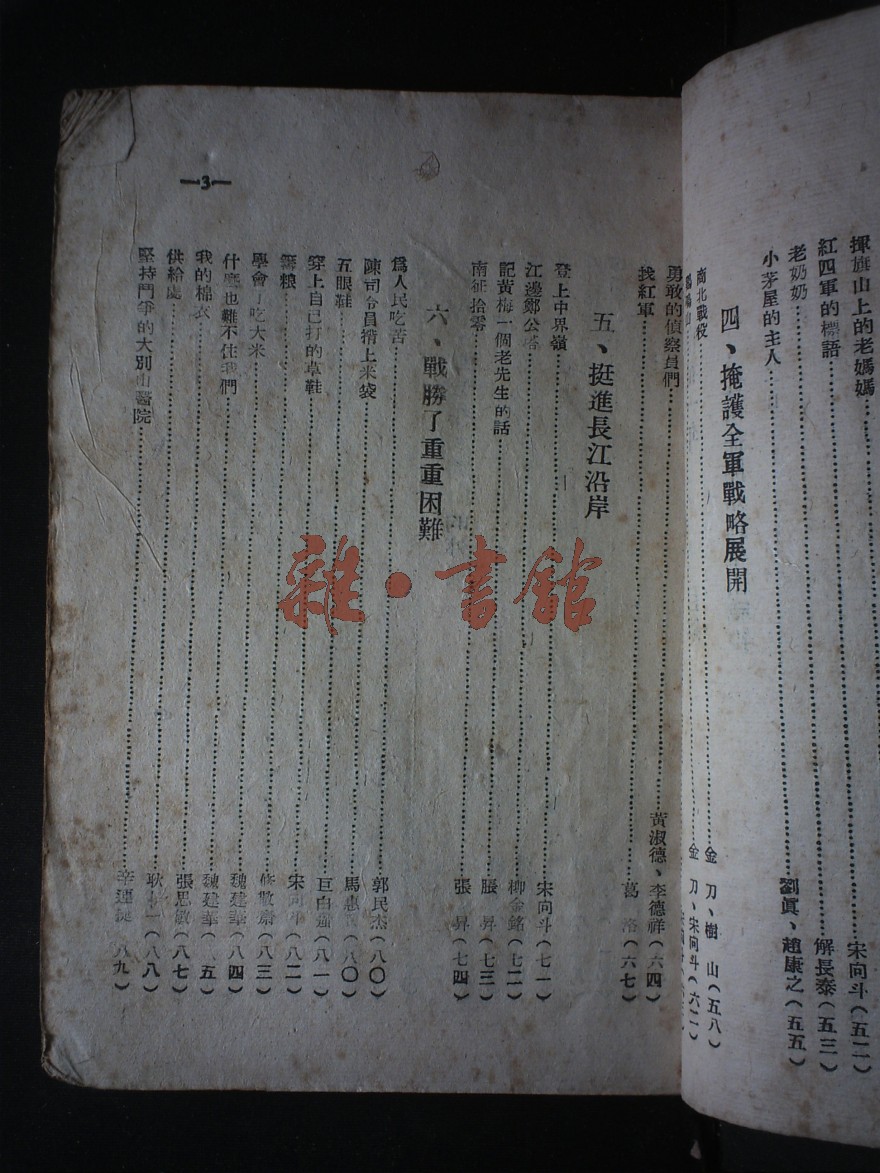 揮旗山上的老媽媽……宋向斗(五二)
紅四軍的標語……解長泰(五三)
老奶奶……
小茅屋的主人……劉眞、趙康之(五五)
四、掩護全軍戰略展開
商北戰役……金刀、樹山(五八)
金刀、宋向斗(六二)
勇敢的偵察員們……黃淑德、李德祥(六四)
找紅軍……葛洛(六七)
五、挺進長江沿岸
登上中界嶺……宋向斗(七一)
江邊鄭公塔……柳金銘(七二)
記黃梅一個老先生的話……張昇(七三)
南征拾零……張昇(七四)
六、戰勝了重重困難
爲人民吃苦……郭民杰(八〇)
陳司令員揹上米袋……馬惠(八〇)
五眼鞋……
穿上自己打的草鞋……(八一)
籌粮……宋向斗(八二)
學會了吃大米……(八三)
什麼也難不住我們……魏建華(八四)
我的棉衣……魏建華(八五)
供給處……張思敏(八七)
堅持鬥爭的大別山醫院……(八九)
—3—
雜·書館